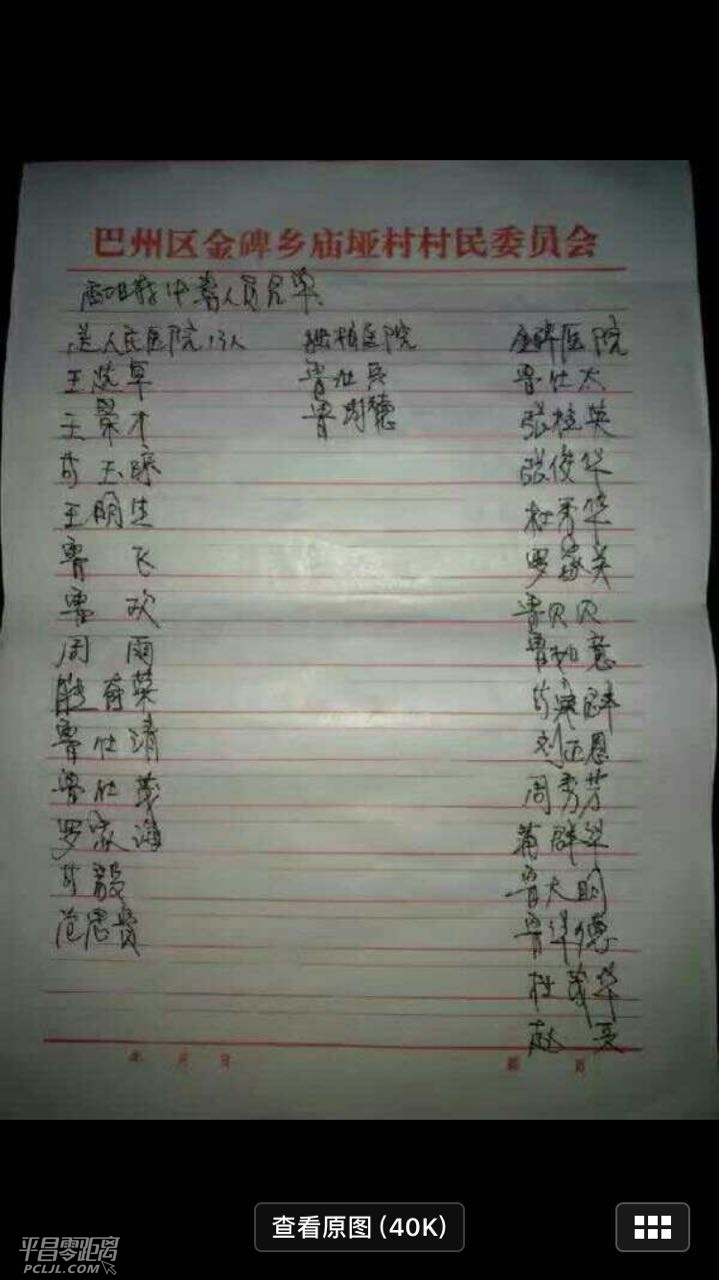 巴州区金碑乡庙垭村村民委员会
庙垭村中毒人员名单
送人民医院13人 医院 金碑医院
王 鲁仕兵 鲁仕太
王荣才 鲁 德 张桂英
苟玉 张俊华
王明生 杜秀华
鲁飞 罗家美
鲁 鲁贝贝
周雨 鲁 意
熊 荣 苟 群
鲁仕清 刘正恩
鲁仕茂 周秀芳
罗家海 蒲群华
苟毅 鲁大明
范思贵 鲁华德
杜茂华
赵
年 月 日 第 页
查看原图(40K)
平昌零距离
PCLJL.COM